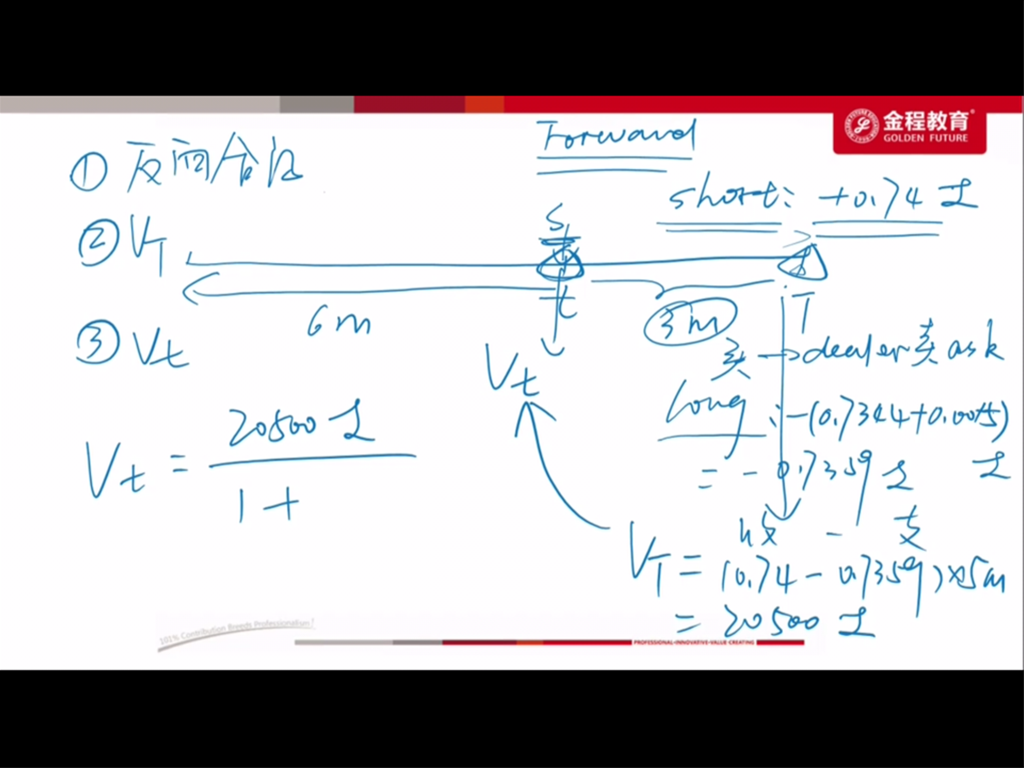 金程教育
GOLDEN FUTURE
Forward
① 反向合约
short: +0.74 £
② V_T
S
t
T
6m
3m
③ V_t
V_t
买 → dealer卖 ask
long : -(0.7344+0.0015) £
= -0.7359 £
V_t = 20500 £
1 +
收 - 支
V_T = (0.74 - 0.7359) × 5m
= 20500 £
101% Contribution Breeds Professionalism!
PROFESSIONAL·INNOVATIVE·VALUE CREATING